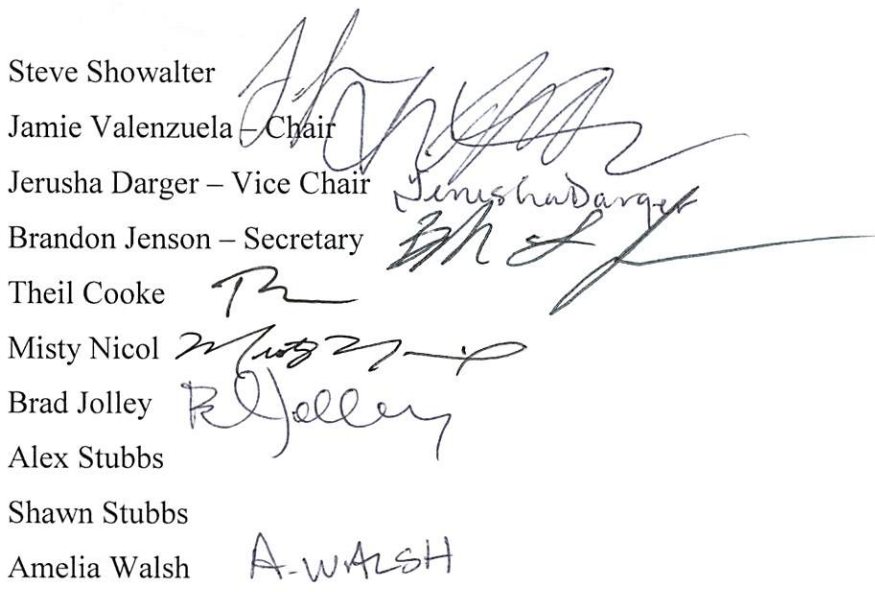 Steve Showalter
Jamie Valenzuela – Chair
Jerusha Darger – Vice Chair Jerusha Darger
Brandon Jenson – Secretary
Theil Cooke
Misty Nicol
Brad Jolley B Jolley
Alex Stubbs
Shawn Stubbs
Amelia Walsh A-WALSH